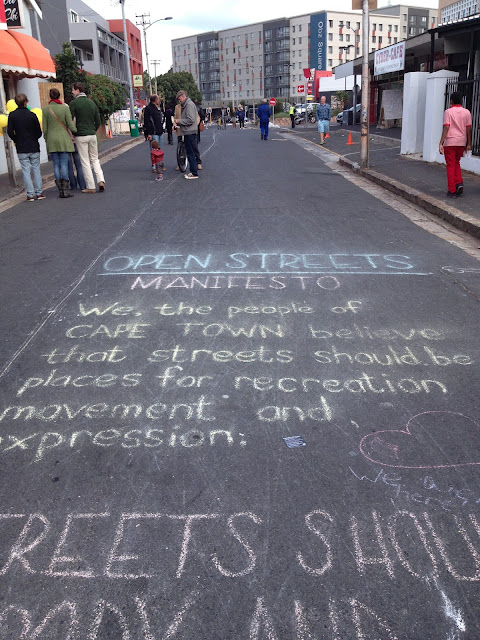 Obz Square
OPEN STREETS
MANIFESTO
We, the people of
CAPE TOWN believe
that streets should be
places for recreation
movement and
expression:
STREETS SHOU